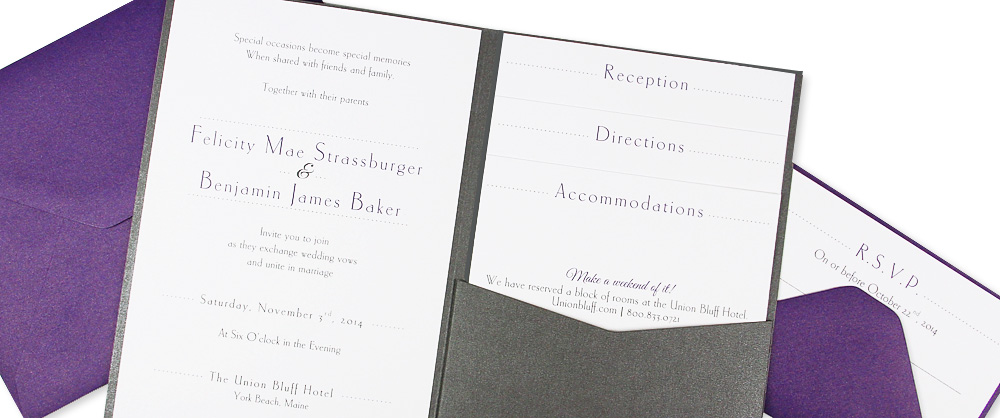 Special occasions become special memories
When shared with friends and family.
Together with their parents
Felicity Mae Strassburger
&
Benjamin James Baker
Invite you to join
as they exchange wedding vows
and unite in marriage
Saturday, November 3rd, 2014
At Six O'clock in the Evening
The Union Bluff Hotel
York Beach, Maine
Reception
Directions
Accommodations
Make a weekend of it!
We have reserved a block of rooms at the Union Bluff Hotel
Unionbluff.com | 800.833.0721
R.S.V.P.
On or before October 22nd, 2014